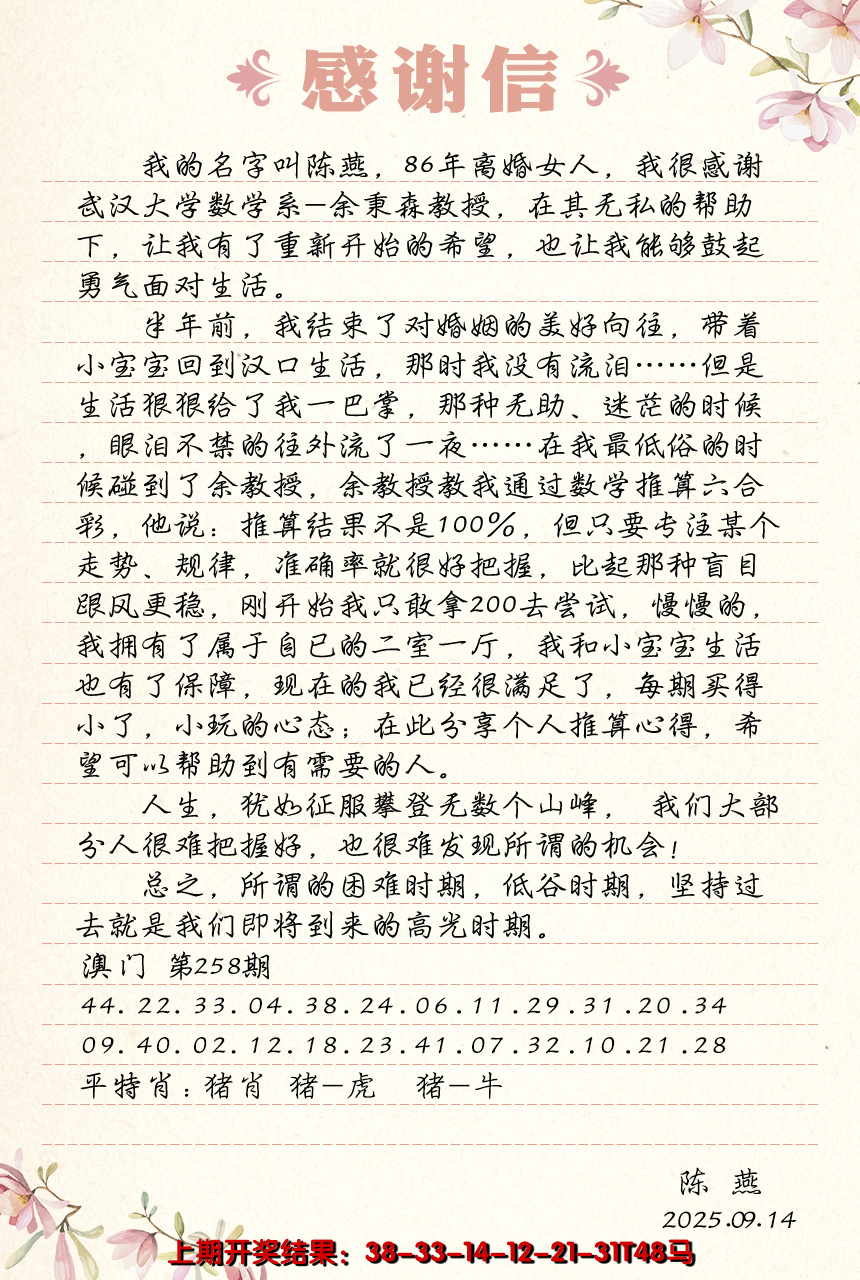 感谢信
我的名字叫陈燕，86年离婚女人，我很感谢
武汉大学数学系-余秉森教授，在其无私的帮助
下，让我有了重新开始的希望，也让我能够鼓起
勇气面对生活。
半年前，我结束了对婚姻的美好向往，带着
小宝宝回到汉口生活，那时我没有流泪……但是
生活狠狠给了我一巴掌，那种无助、迷茫的时候
，眼泪不禁的往外流了一夜……在我最低俗的时
候碰到了余教授，余教授教我通过数学推算六合
彩，他说：推算结果不是100%，但只要专注某个
走势、规律，准确率就很好把握，比起那种盲目
跟风更稳，刚开始我只敢拿200去尝试，慢慢的，
我拥有了属于自己的二室一厅，我和小宝宝生活
也有了保障，现在的我已经很满足了，每期买得
小了，小玩的心态；在此分享个人推算心得，希
望可以帮助到有需要的人。
人生，犹如征服攀登无数个山峰， 我们大部
分人很难把握好，也很难发现所谓的机会！
总之，所谓的困难时期，低谷时期，坚持过
去就是我们即将到来的高光时期。
澳门 第258期
44.22.33.04.38.24.06.11.29.31.20.34
09.40.02.12.18.23.41.07.32.10.21.28
平特肖：猪肖 猪-虎 猪-牛
陈 燕
2025.09.14
上期开奖结果：38-33-14-12-21-31T48马